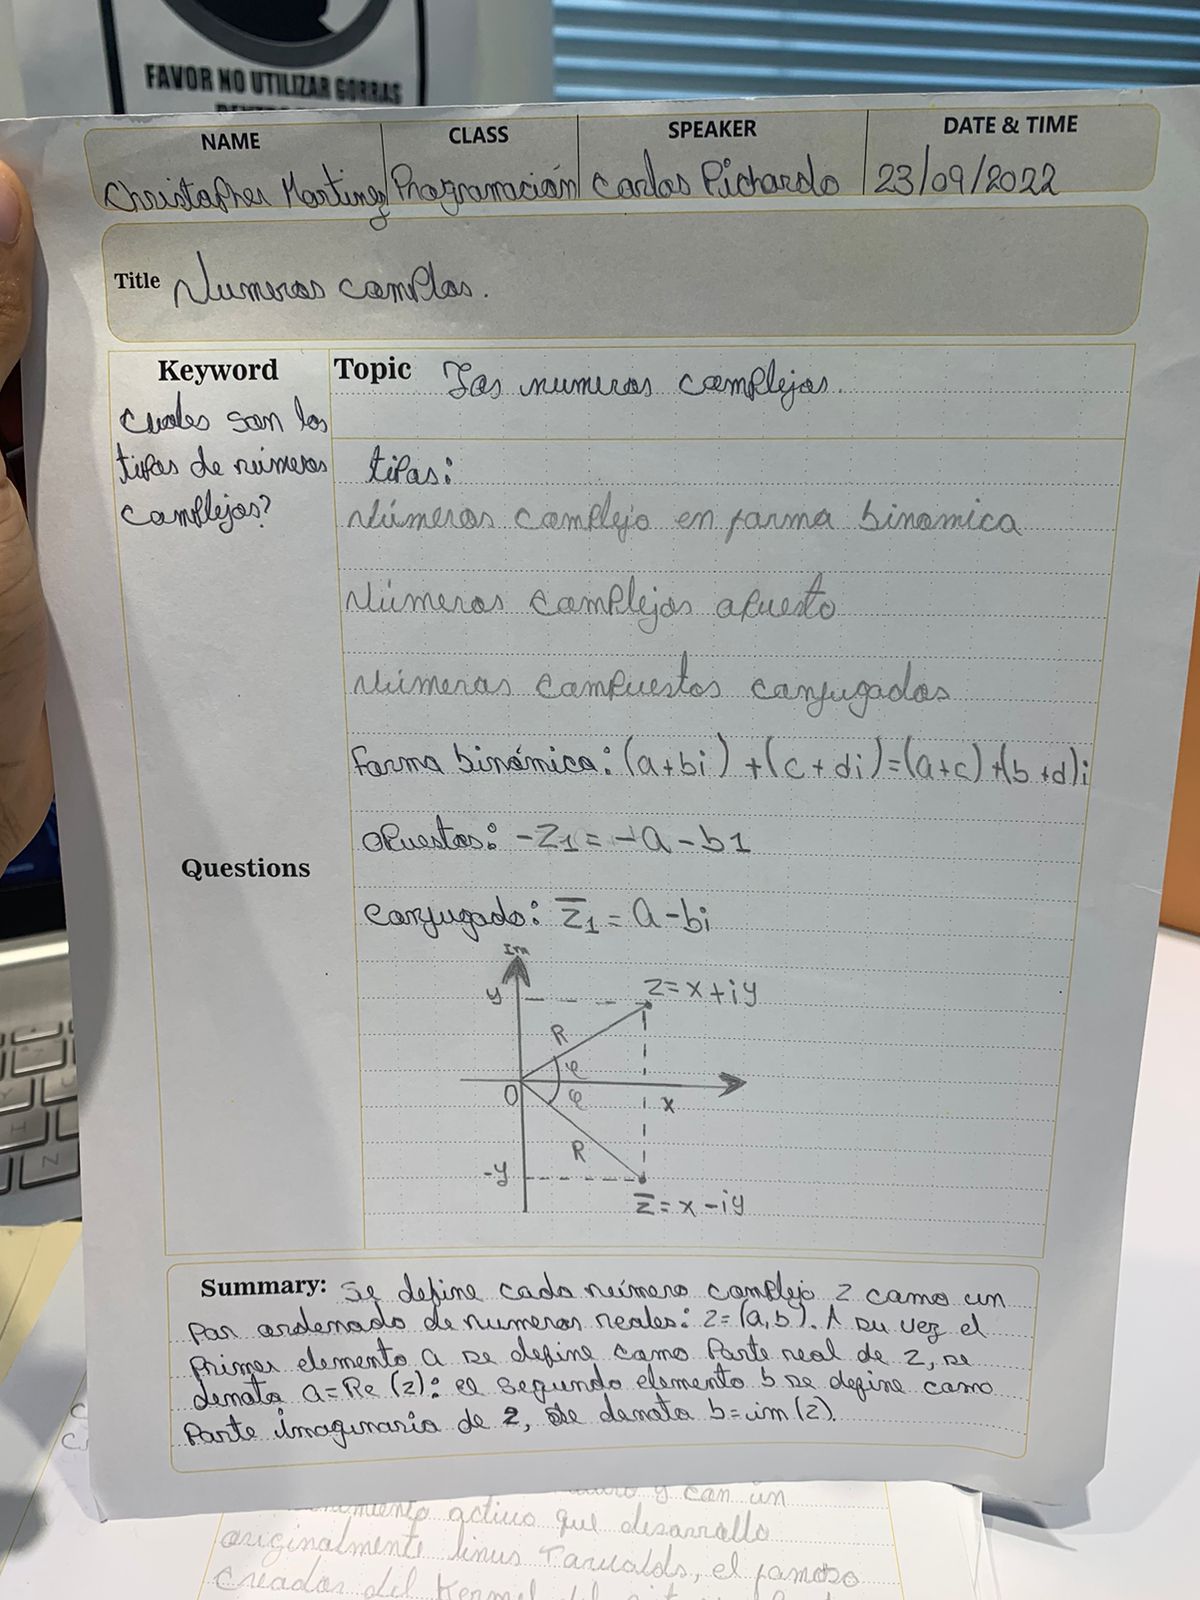 FAVOR NO UTILIZAR GORRAS
NAME CLASS SPEAKER DATE & TIME
Christopher Martinez Programación Carlos Pichardo 23/09/2022
Title Numeros complos.
Keyword Topic Los numeros complejos.
Cuales son los
tipos de números
complejos?
tipos:
Números complejo en forma binomica
Números complejos opuesto
Números compuestos conjugados
forma binómica: (a+bi) + (c + di) = (a+c) + (b+d)i
Questions
opuestos: -z1 = -a - b1
conjugado: z̄1 = a - bi
Im
y z = x + iy
R
φ
0 φ x
R
-y
z̄ = x - iy
Summary: Se define cada número complejo z como un
par ordenado de numeros reales: z = (a, b). A su vez el
primer elemento a se define como parte real de z, se
denota a = Re (z): el segundo elemento b se define como
parte imaginaria de z, se denota b = im (z).
y con un
activo que desarrollo
originalmente linus Tarvalds, el famoso
creador del Kernel del